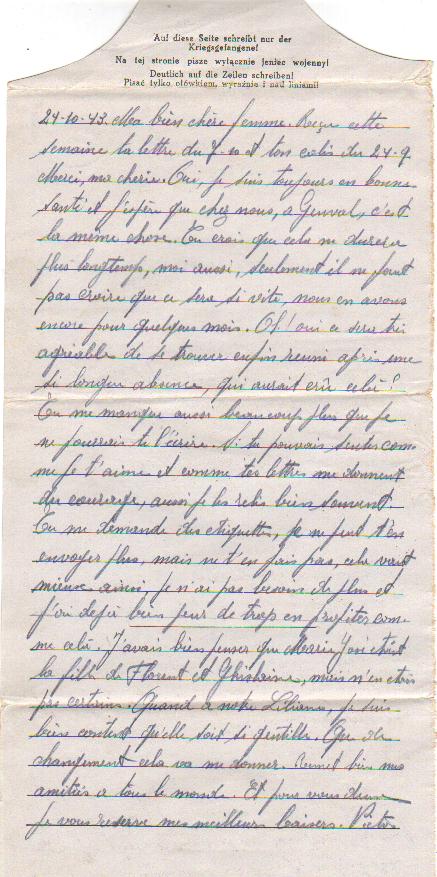 Auf diese Seite schreibt nur der
Kriegsgefangene!
Na tej stronie pisze wyłącznie jeniec wojenny!
Deutlich auf die Zeilen schreiben!
Pisać tylko ołówkiem, wyraźnie i nad liniami!
24-10-43. Ma bien chère femme. Reçu cette
semaine la lettre du 7-10 et ton colis du 24-9
Merci, ma chérie. Oui, je suis toujours en bonne
santé et j'espère que chez nous, a Genval, c'est
la même chose. Tu crois que cela ne durera
plus longtemps, moi aussi, seulement il ne faut
pas croire que ce sera si vite, nous en avons
encore pour quelques mois. Oh! oui ce sera très
agréable de se trouver enfin reuni après une
si longue absence, qui aurait cru cela!
Tu me manque aussi beaucoup plus que je
ne pourrais te l'écrire. Si tu pouvais sentir com-
me je t'aime et comme tes lettres me donnent
du courage, aussi je les relis bien souvent.
Tu me demande des etiquettes, je ne peut t'en
envoyer plus, mais ne t'en fais pas, cela vaut
mieux ainsi, je n'ai pas besoin de plus et
j'ai dejà bien peur de trop en profiter com-
me celà. J'avais bien penser que Marie José etait
la fille de Florent et Ghislaine, mais n'en étais
pas certain. Quand a notre Liliane, je suis
bien content qu'elle soit si gentille. Que de
changement cela va me donner. Remet bien mes
amitiés a tous le monde. Et pour vous deux
je vous reserve mes meilleurs baisers. Victor